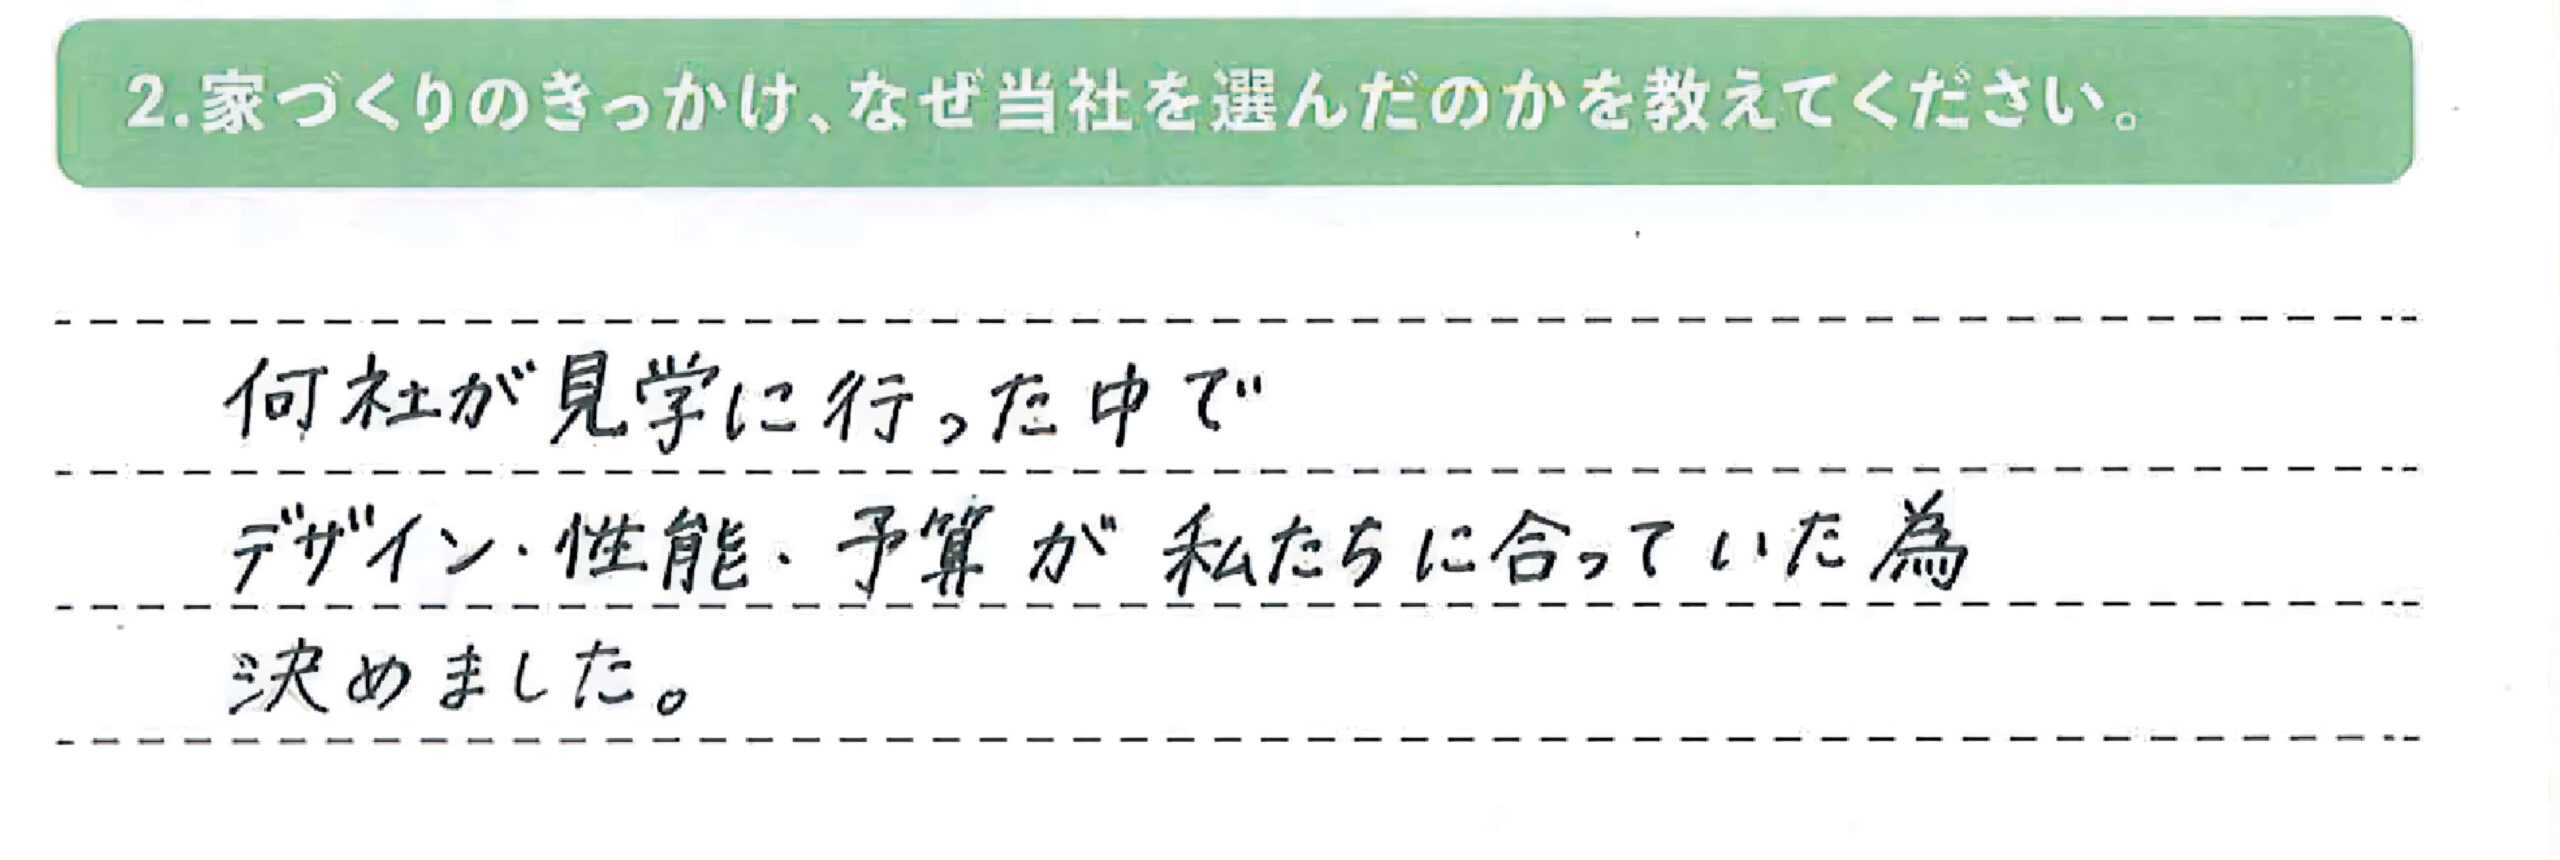 2.家づくりのきっかけ、なぜ当社を選んだのかを教えてください。
何社が見学に行った中で
デザイン・性能・予算が私たちに合っていた為
決めました。